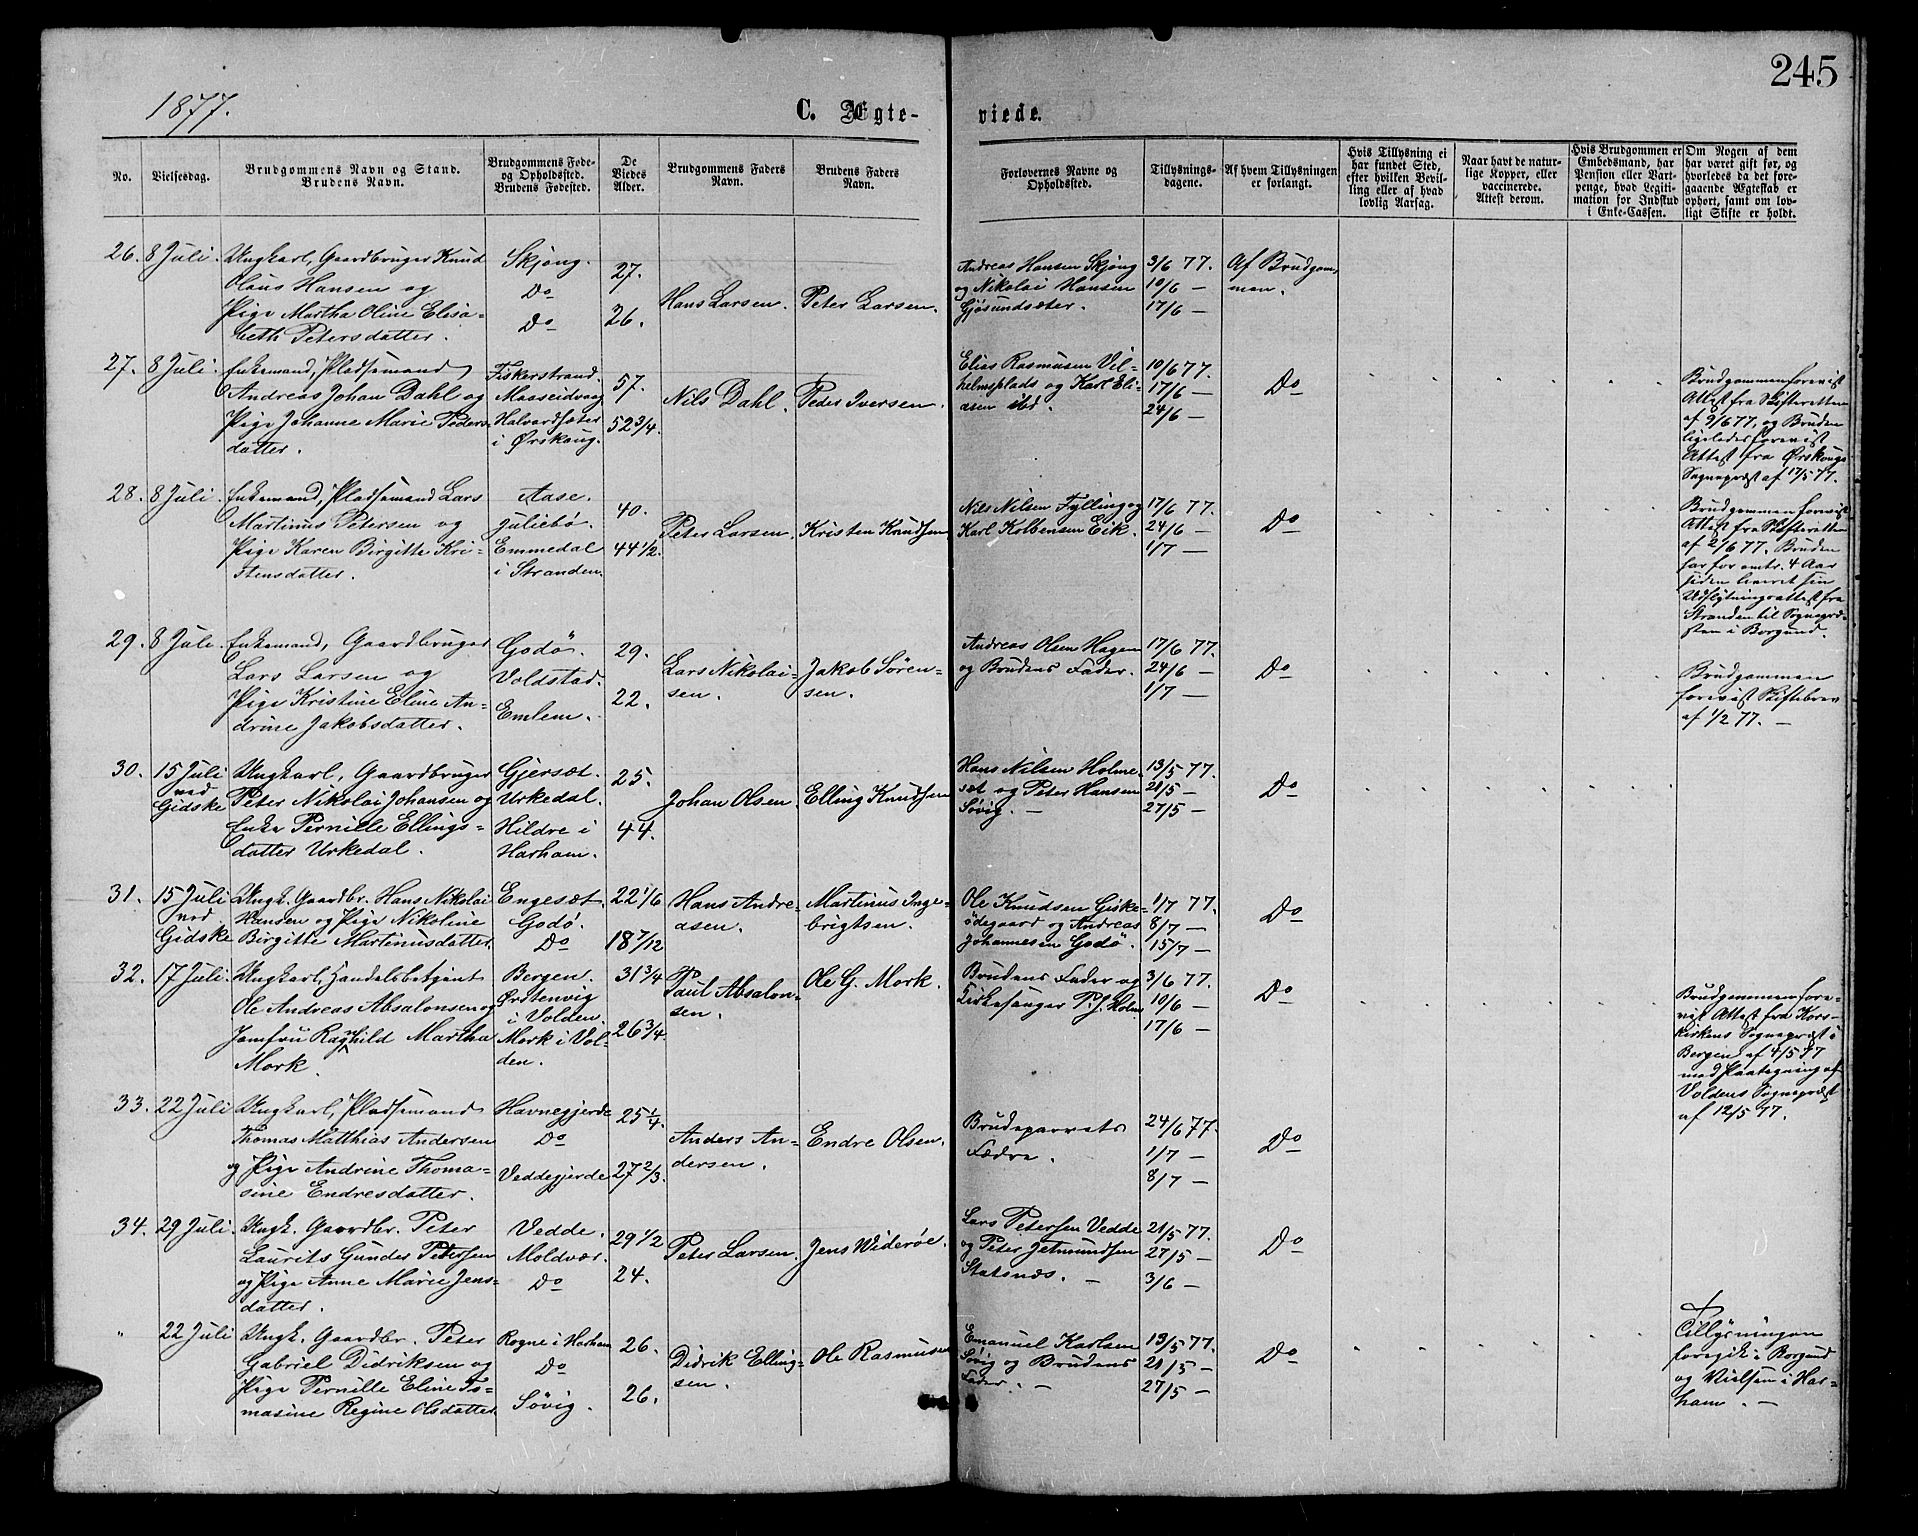 245
1877.
C. Ægte-
viede.
No.
Vielsesdag.
Brudgommens Navn og Stand.
Brudens Navn.
Brudgommens Føde-
og Opholdssted.
Brudens Fødested.
De
Viedes
Alder.
Brudgommens Faders
Navn.
Brudens Faders
Navn.
Forlovernes Navne og
Opholdssted.
Tillysnings-
dagene.
Af hvem Tillysningen
er forlangt.
Hvis Tillysning ei
har fundet Sted,
efter hvilken Bevil-
ling eller af hvad
lovlig Aarsag.
Naar havt de natur-
lige Kopper, eller
vaccinerede.
Attest derom.
Hvis Brudgommen er
Embedsmand, har
Pension eller Vart-
penge, hvad Legiti-
mation for Indskud
i Enke-Cassen.
Om Nogen af dem
har været gift før, og
hvorledes da det fore-
gaaende Ægteskab er
ophørt, samt om lov-
ligt Skifte er holdt.
26.
8 Juli.
Ungkarl, Gaardbruger Knud
Olaus Hansen og
Pige Martha Oline Elisa-
beth Petersdatter.
Skjong.
Do
Do
27.
26.
Hans Larsen.
Peter Larsen.
Andreas Hansen Skjong
og Nikolai Hansen
Gjøsundsæter.
3/6 77.
10/6 —
17/6 —
Af Brudgom-
men.
27.
8 Juli.
Enkemand, Pladsemand
Andreas Johan Dahl og
Pige Johanne Marie Peders-
datter.
Fiskerstrand.
Maaseidvaag
Halvardsæter
i Ørskoug.
57.
52 3/4.
Nils Dahl.
Peder Iversen.
Elias Rasmusen Vil-
helmsplads og Karl Eli-
asen ibd.
10/6 77.
17/6 —
24/6 —
Do
Brudgommen forevist
Attest fra Skifteretten
af 9/6 77, og Bruden
ligeledes forevist
Attest fra Ørskougs
Sognepræst af 17/5 77.
28.
8 Juli.
Enkemand, Pladsemand Lars
Martinus Petersen og
Pige Karen Birgitte Kri-
stensdatter.
Aase.
Juliebø.
Emmedal
i Stranden.
40.
44 1/2.
Peter Larsen.
Kristen Knudsen
Nils Nilsen Fylling og
Karl Kolbensen Eik.
17/6 77.
24/6 —
1/7 —
Do
Brudgommen forevist
Attest fra Skifteretten
af 2/6 77. Bruden
har for omtr. 4 Aar
siden leveret sin
Udflytningsattest fra
Stranden til Sognepræ-
sten i Borgund.
29.
8 Juli.
Enkemand, Gaardbruger
Lars Larsen og
Pige Kristine Eline An-
drine Jakobsdatter.
Godø.
Voldstad.
Emlem.
29.
22.
Lars Nikolai-
sen.
Jakob Søren-
sen.
Andreas Olsen Hagen
og Brudens Fader.
17/6 77.
24/6 —
1/7 —
Do
Brudgommen
forevist Skiftebrev
af 1/2 77. —
30.
15 Juli
ved
Gidske
Ungkarl, Gaardbruger
Peter Nikolai Johansen og
Enke Pernille Ellings-
datter Urkedal.
Gjersæt.
Urkedal.
Hildre i
Harham.
25.
44.
Johan Olsen
Elling Knudsen
Hans Nilsen Holme-
set og Peter Hansen
Søvig. —
13/5 77.
21/5 —
27/5 —
Do
31.
15 Juli
ved
Gidske
Ungk. Gaardbr. Hans Nikolai
Hansen og Pige Nikoline
Birgitte Martinusdatter
Engesæt.
Godø.
Do
22 1/6
18 7/12
Hans Andre-
asen.
Martinus Inge-
brigtsen.
Ole Knudsen Giske-
ødegaard og Andreas
Johannesen Godø.
1/7 77.
8/7 —
15/7 —
Do
32.
17 Juli.
Ungkarl, Handelsbetjent
Ole Andreas Absalonsen og
Jomfru Ragnhild Martha
Mork.
Bergen.
Ørstenvig
i Volden.
Mork i Vol-
den.
31 3/4
26 3/4.
Paul Absalon-
sen.
Ole G. Mork.
Brudens Fader og
Kirkesanger P. J. Holm
3/6 77.
10/6 —
17/6 —
Do
Brudgommen fore-
vist Attest fra Kors-
kirkens Sognepræst i
Bergen af 4/5 77
med Paategning af
Voldens Sognepræst
af 12/5 77.
33.
22 Juli
Ungkarl, Pladsemand
Thomas Matthias Andersen
og Pige Andrine Thoma-
sine Endresdatter.
Havnegjerde
Do
Veddegjerde
25 1/4.
27 2/3.
Anders An-
dersen.
Endre Olsen.
Brudeparrets
Fædre.
24/6 77.
1/7 —
8/7 —
Do
34.
29 Juli.
Ungk. Gaardbr. Peter
Laurits Gunder Petersen
og Pige Anne Marie Jens-
datter.
Vedde.
Moldvær.
Do
29 1/2
24.
Peter Larsen.
Jens Widerøe.
Lars Petersen Vedde
og Peter Jetmundsen
Statsnæs. —
21/5 77.
27/5 —
3/6 —
Do
"
22 Juli
Ungk. Gaardbr. Peter
Gabriel Didriksen og
Pige Pernille Eline To-
masine Regine Olsdatter.
Rogne i Harham
Do
Søvig.
26.
26.
Didrik Elling-
sen.
Ole Rasmusen
Emanuel Karlsen
Søvig og Brudens
Fader. —
13/5 77.
21/5 —
27/5 —
Do
Tillysningen
foregik i Borgund
og Vielsen i Har-
ham. —